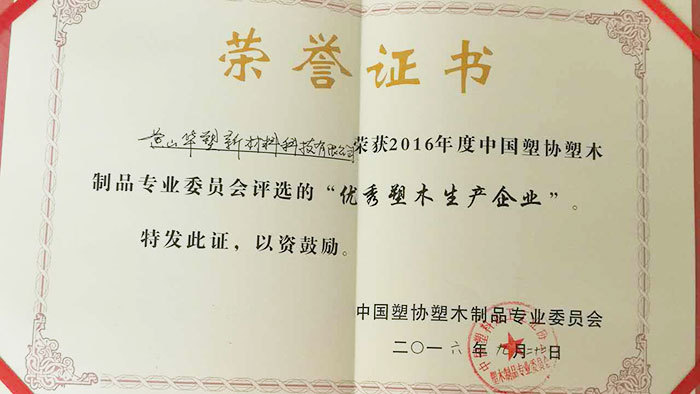 荣誉证书
黄山华塑新材料科技有限公司荣获2016年度中国塑协塑木
制品专业委员会评选的“优秀塑木生产企业”。
特发此证，以资鼓励。
中国塑协塑木制品专业委员会
二〇一六年九月二十七日
塑木制品专业委员会